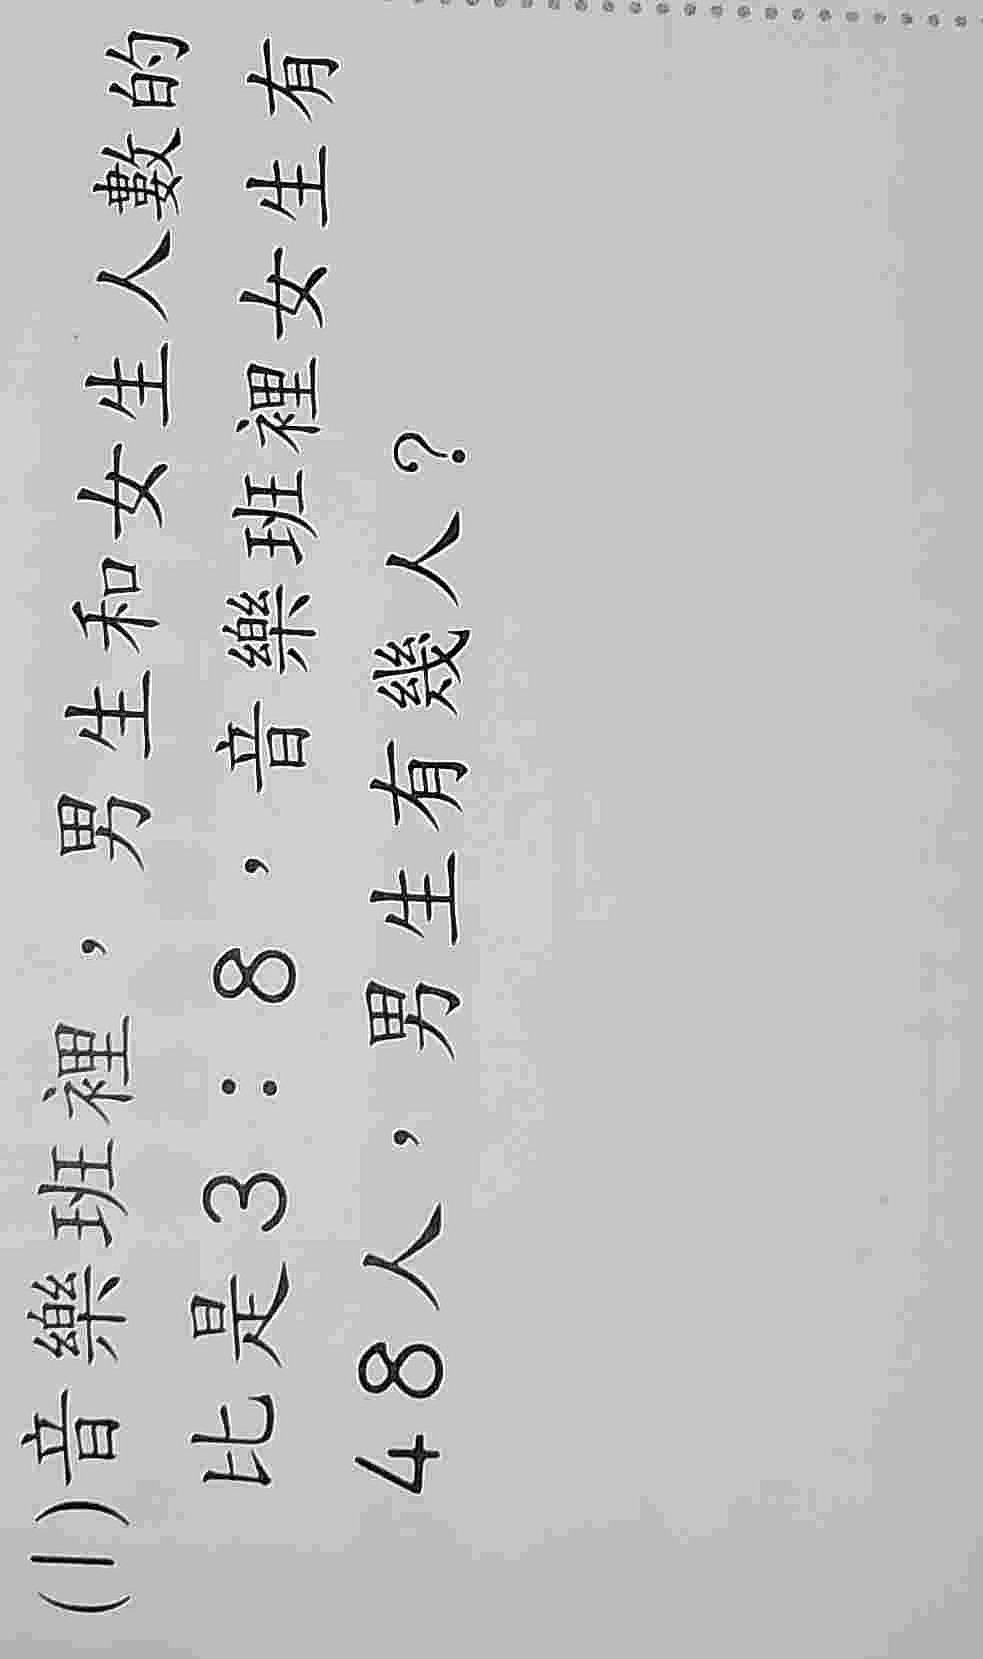 (1)音樂班裡，男生和女生人數的
比是3：8，音樂班裡女生有
48人，男生有幾人？